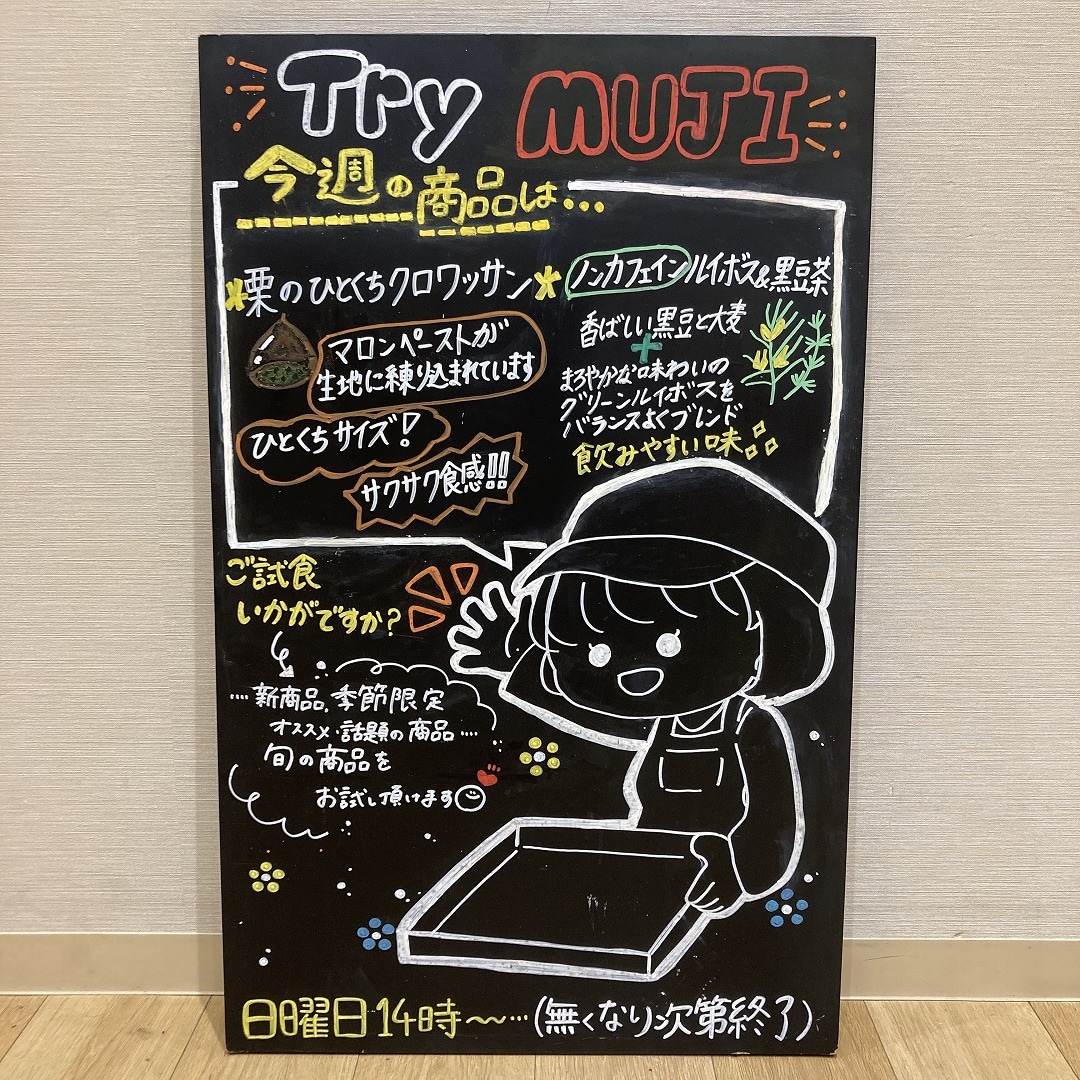 Try MUJI
今週の商品は...
栗のひとくちクロワッサン
マロンペーストが
生地に練り込まれています
ひとくちサイズ!
サクサク食感!!
ノンカフェインルイボス&黒豆茶
香ばしい黒豆と大麦
+
まろやかな味わいの
グリーンルイボスを
バランスよくブレンド
飲みやすい味
ご試食
いかがですか?
....新商品、季節限定
オススメ・話題の商品....
旬の商品を
お試し頂けます
日曜日14時〜...(無くなり次第終了)